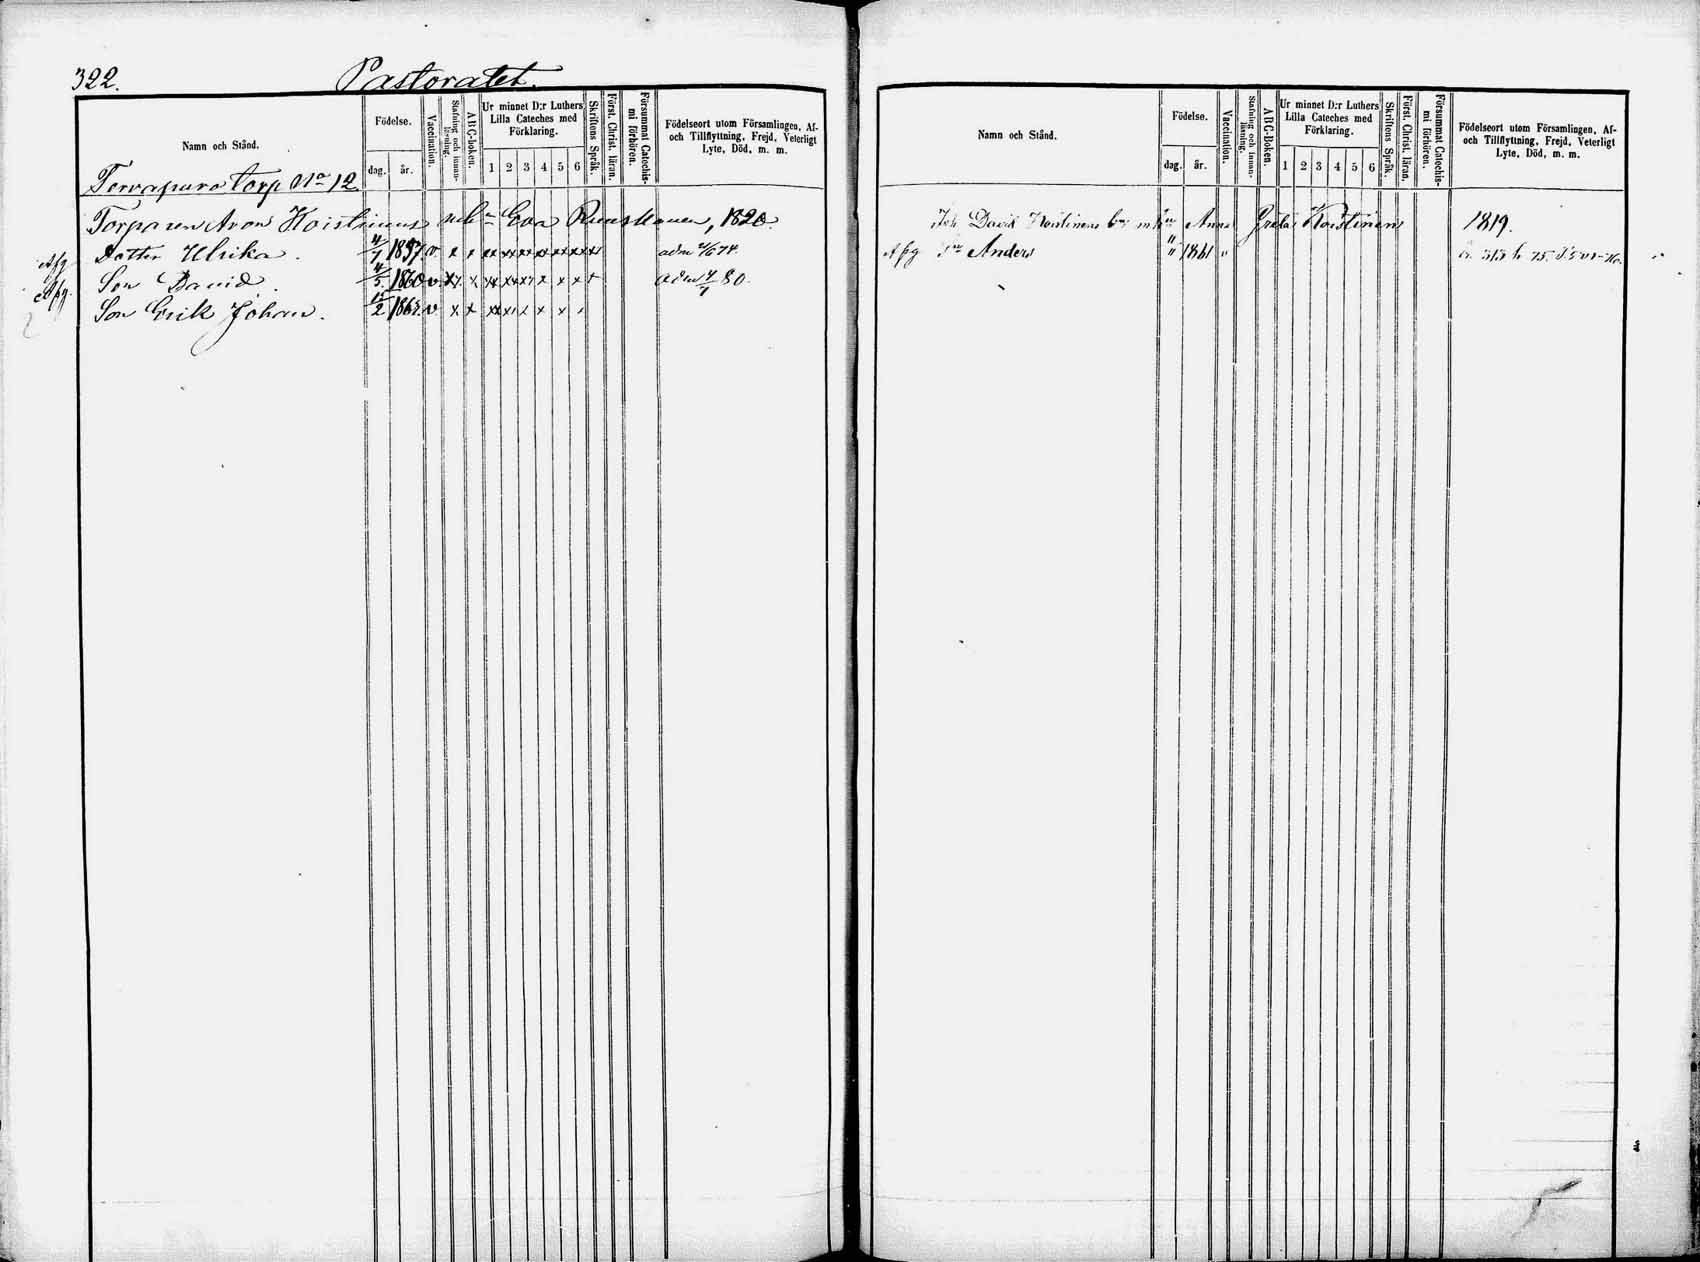 322.
Pastoratet.
Namn och Stånd.
Födelse.
dag.
år.
Vaccination.
Stafning och innan-läsning.
ABC-boken.
Ur minnet D:r Luthers Lilla Cateches med Förklaring.
1 2 3 4 5 6
Skriftens Språk.
Först. Christ. läran.
Försummat Catechis-mi förhören.
Födelseort utom Församlingen, Af-
och Tillflyttning, Frejd, Veterligt
Lyte, Död, m. m.
Tervapuro torp No 12
Torparen Aron Hoistinens Eva 1820.
Afg Dotter Ulrika. 4/7 1857 v x x xx xx xx xx xx xx adm 74.
Afg. Son David. 4/5 1860 v adm 80.
Son Erik Johan. 2 v x x
Namn och Stånd.
Födelse.
dag.
år.
Vaccination.
Stafning och innan-läsning.
ABC-Boken.
Ur minnet D:r Luthers Lilla Cateches med Förklaring.
1 2 3 4 5 6
Skriftens Språk.
Först. Christ. läran.
Försummat Catechis-mi förhören.
Födelseort utom Församlingen, Af-
och Tillflyttning, Frejd, Veterligt
Lyte, Död, m. m.
Joh David Anna Greta 1819.
Afg Anders 1861 v